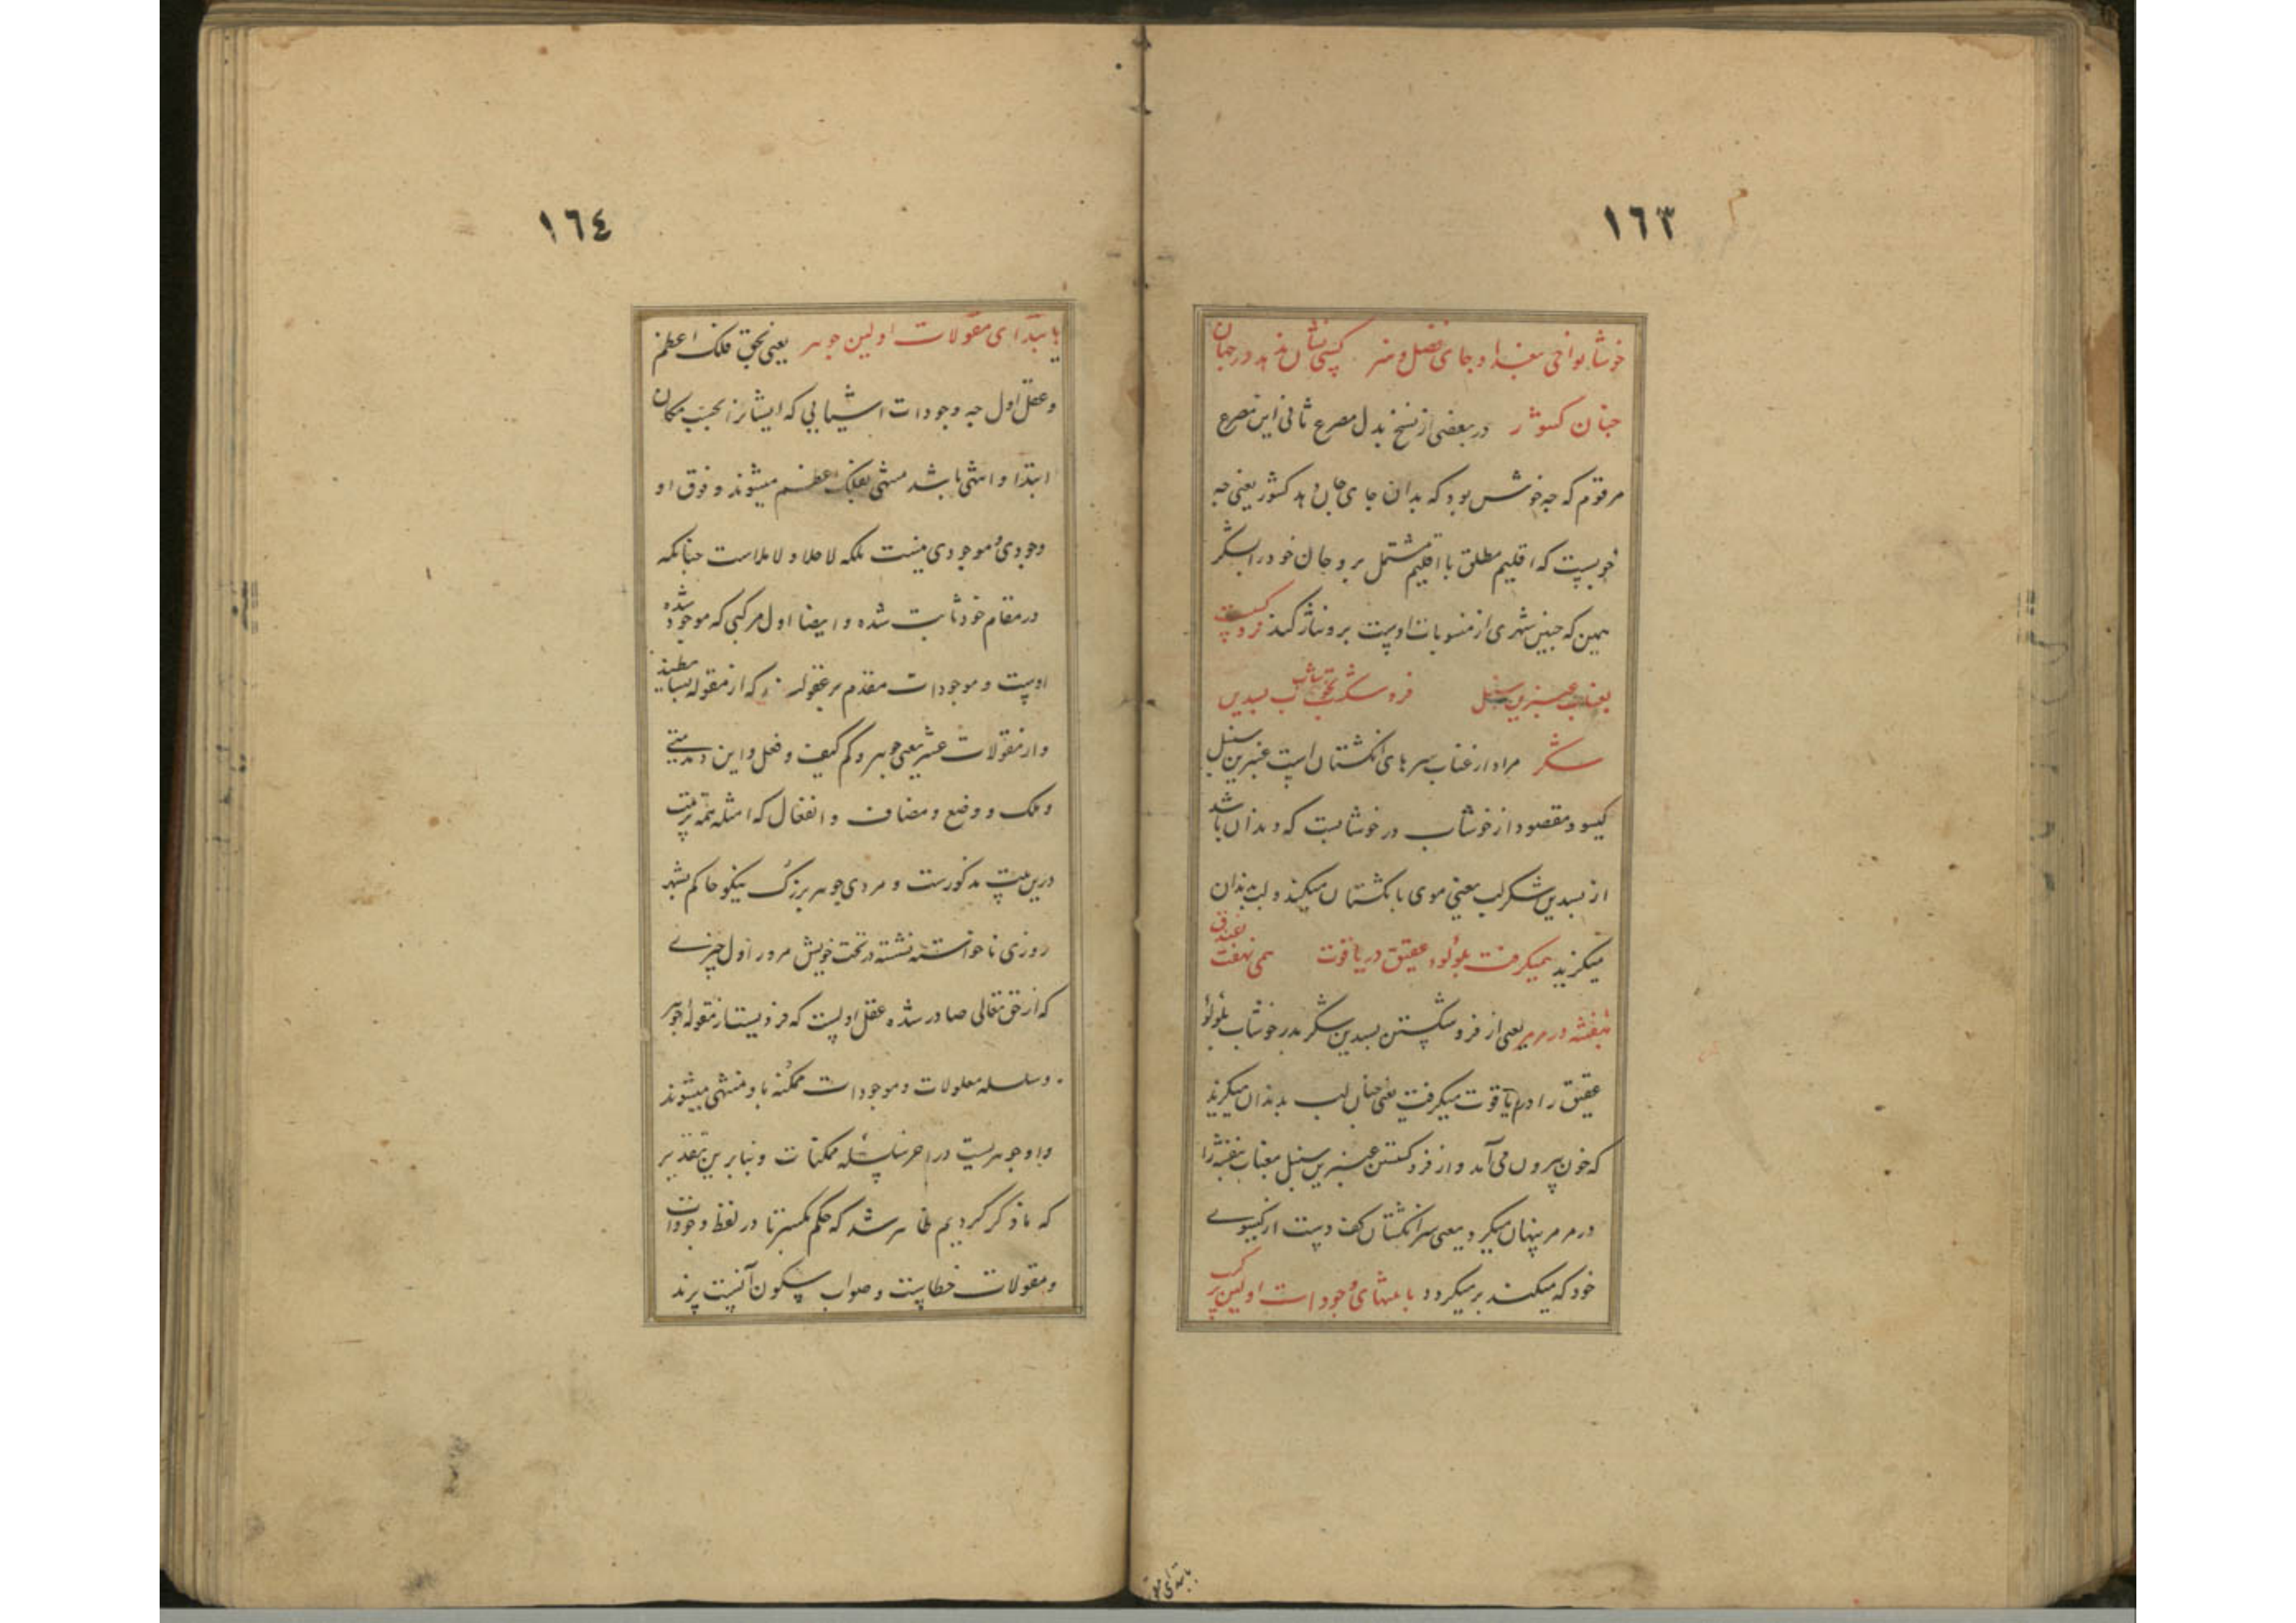 ١٦٣
خوشا نواحی بغداد و جای فضل و هنر کسی نشان ندهد در جهان
چنان کشور در بعضی از نسخ بدل مصرع ثانی این مصرع
مرقوم که چه خوش بود که بدان جای جان دهد کشور یعنی چه
خوبست که اقلیم مطلق با اقلیم مشتمل بر و جان خود را بشکر
همین که چنین شهری از منسوبات اوست برو نثار کند فرو گسست
بعناب عنبرین سنبل فرو شکست بخوشاب بسدین
شکر مراد از عناب سرهای انگشتان است عنبرین سنبل
گیسو و مقصود از خوشاب در خوشابست که دندان باشد
از بسدین شکر لب یعنی موی بانگشتان میکند و لب بدندان
میگزید همیگرفت بلولو عقیق در یاقوت همی نهفت بفندق
بنفشه در مرمر یعنی از فرو شکستن بسدین شکر بدر خوشاب بلولو
عقیق را در یاقوت میگرفت یعنی چنان لب بدندان میگزید
که خون بیرون می آمد و از فرو گسستن عنبرین سنبل بعناب بنفشه را
در مرمر پنهان میکرد یعنی سر انگشتان کف دست از گیسوی
خود که میکند پر میکردد بانتهای وجودات اولین ترکیب
بابتدای
١٦٤
بابتدای مقولات اولین جوهر یعنی بحق فلک اعظم
و عقل اول چه وجودات اشیایی که ایشانرا بحسب مکان
ابتدا و انتهی باشد منتهی بفلک اعظم میشوند و فوق او
وجودی و موجودی نیست بلکه لا خلا و لا ملاست چنانکه
در مقام خود ثابت شده و ایضا اول مرکبی که موجود شده
اوست و موجودات مقدم بر عقوله که از مقوله بسایطند
و از مقولات عشر یعنی جوهر و کم کیف و فعل و این و متی
و ملک و وضع و مضاف و انفعال که امثله همه بترتیب
درین بیت مذکورست و مردی جوهر بزرگ نیکو حاکم بشهر
روزی ناخواسته نشسته در تخت خویش مرور اول چیزی
که از حق تعالی صادر شده عقل اولست که فردیست از مقوله جوهر
و سلسله معلولات و موجودات ممکنه باو منتهی میشوند
و او جوهریست در اخر سلسله ممکنات و بنابرین تقدیر
که ما ذکر کردیم ظاهر شد که حکم بکسر تا در لفظ وجودات
و مقولات خطاست و صواب سکون آنست پرند